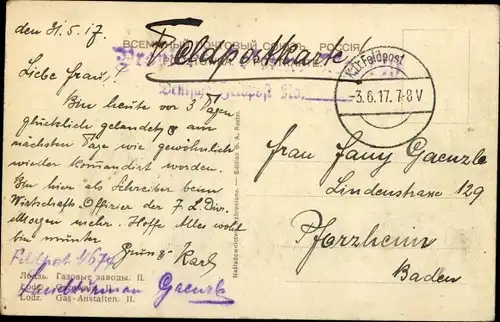 ВСЕМИРНЫЙ ПОЧТОВЫЙ СОЮЗЪ. РОССІЯ.
Feldpostkarte!
den 31.5.17.
Liebe Frau!
Bin heute vor 3 Tagen
glücklich gelandet u. am
nächsten Tage wie gewöhnlich
wieder komandirt worden.
Bin hier als Schreiber beim
Wirtschafts-Offizier der 7. L. Div.
Morgen mehr. Hoffe Alles wohl
bin munter
Gruss Karl
Feldpost
Landsturmman Gaenzle
Лодзь. Газовые заводы. II.
Lodz. Gas-Anstalten. II.
K.D. Feldpost
-3.6.17. 7-8 V
Frau Fany Gaenzle
Lindenstrasse 129
Pforzheim
Baden